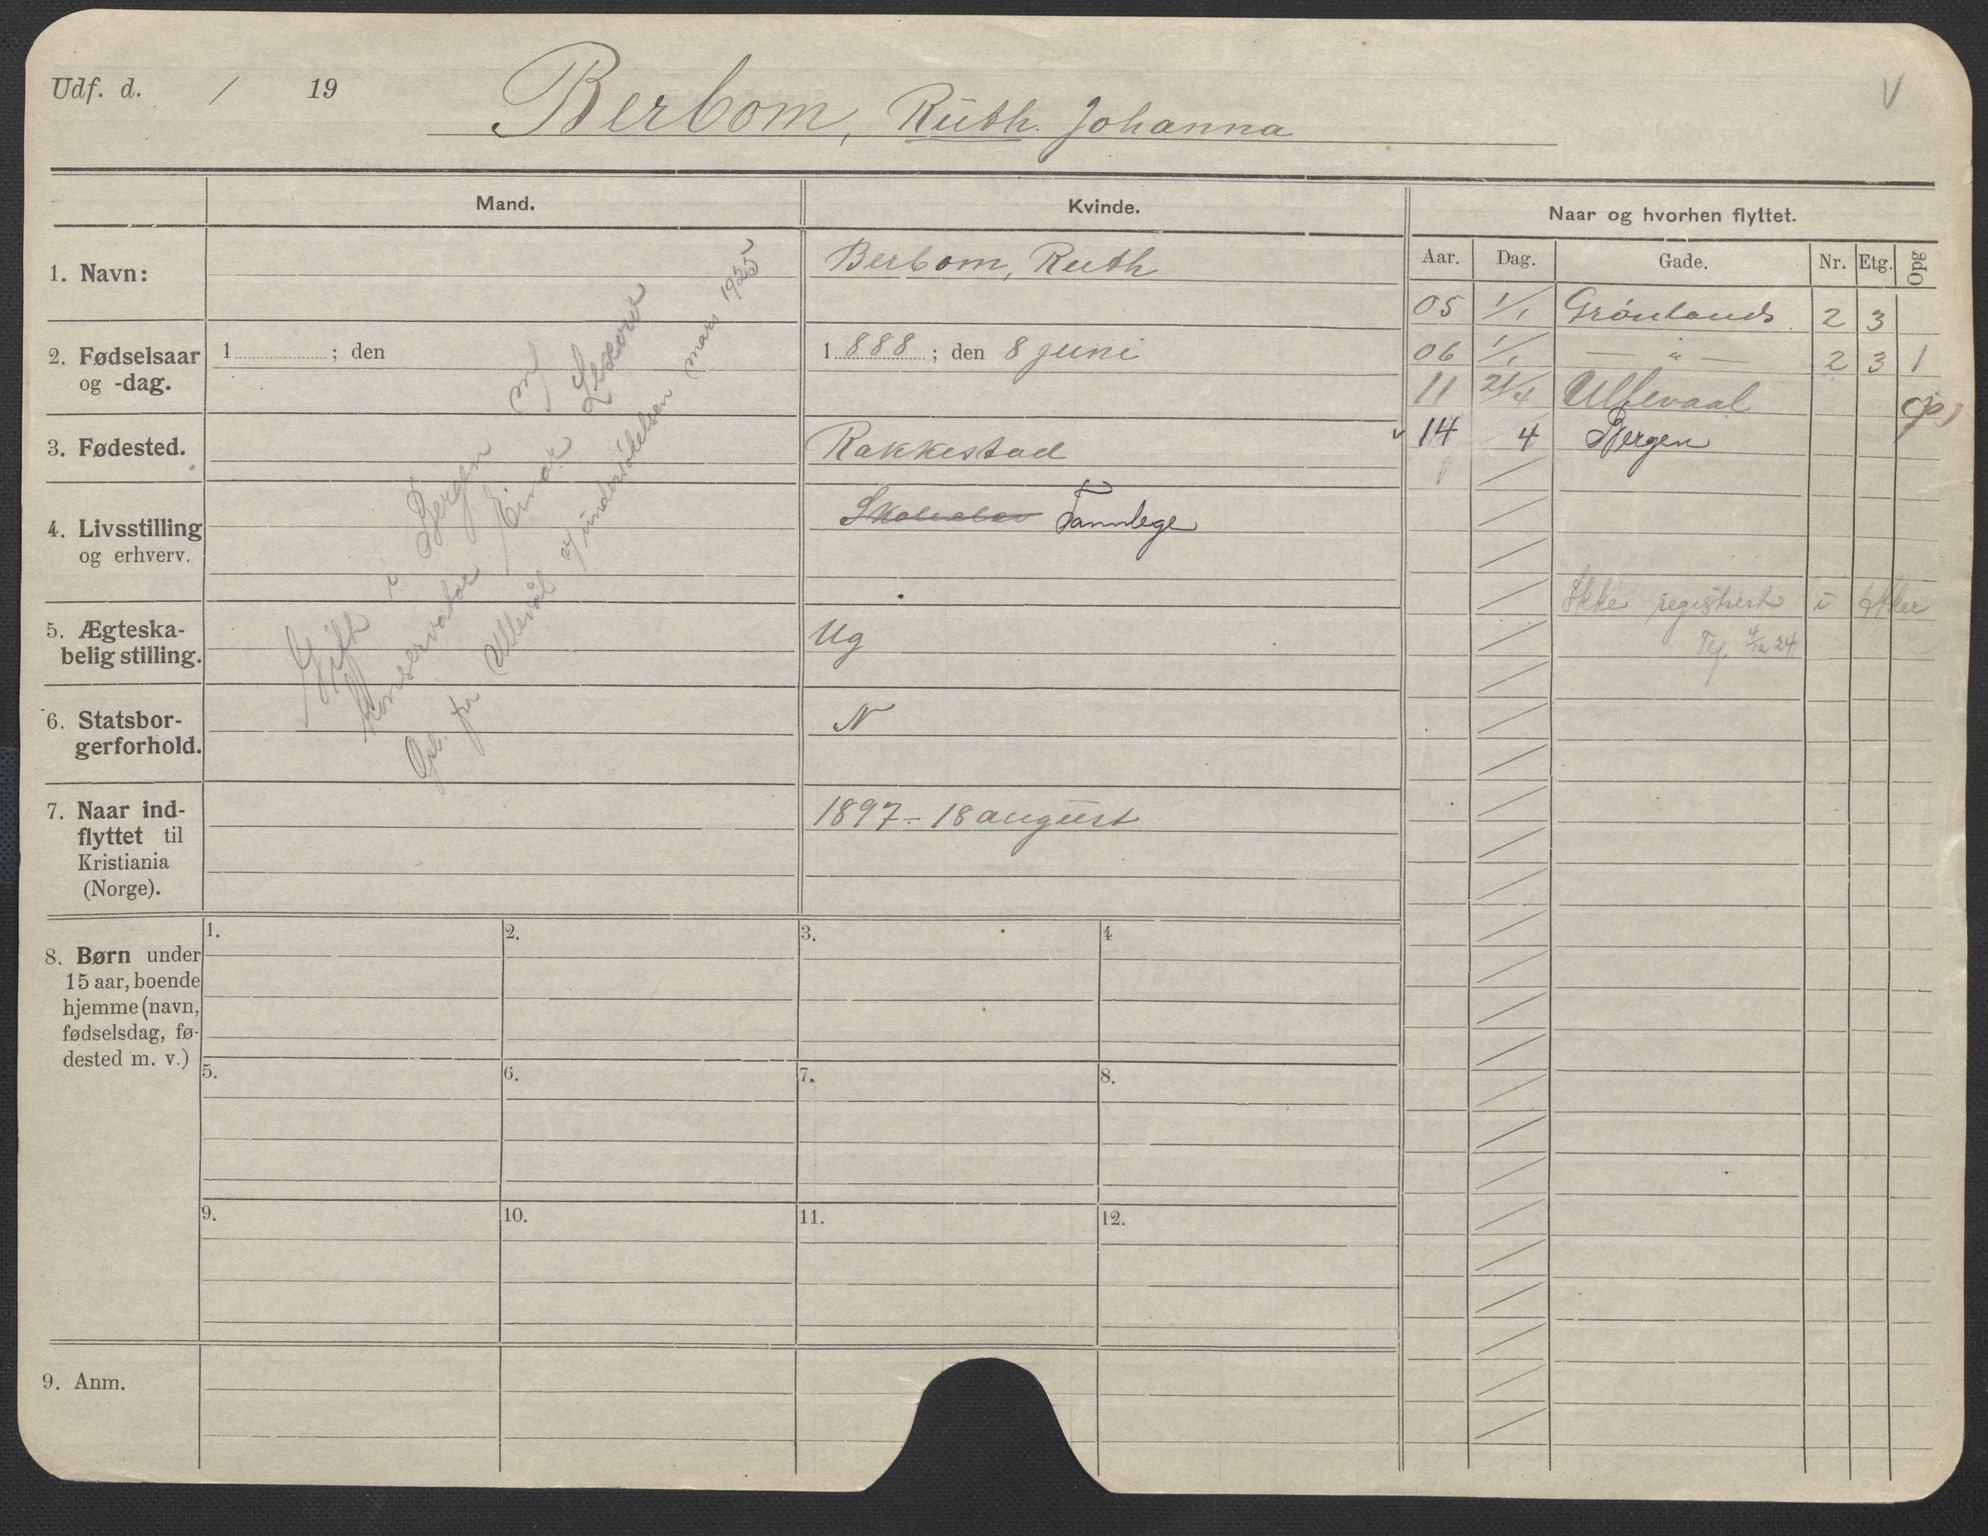 Udf. d. / 19
Berbom, Ruth Johanna
V
Mand.
Kvinde.
Naar og hvorhen flyttet.
Aar. Dag. Gade. Nr. Etg. Opg
1. Navn:
Berbom, Ruth
05 1/1 Grønlands 2 3
06 1/1 — " — 2 3 1
11 21/4 Ullevaal
v 14 4 Bergen
Ikke registrert i Aker
4/12 24
2. Fødselsaar
og -dag.
1 ; den
1 888 ; den 8 juni
3. Fødested.
Rakkestad
4. Livsstilling
og erhverv.
Skoleelev Tannlege
5. Ægteska-
belig stilling.
Ug
6. Statsbor-
gerforhold.
N
7. Naar ind-
flyttet til
Kristiania
(Norge).
1897 - 18 august
Gift i Bergen m/
konservator Einar
fra Ullevål mars 1925
8. Børn under
15 aar, boende
hjemme (navn,
fødselsdag, fø-
dested m. v.)
1. 2. 3. 4
5. 6. 7. 8.
9. 10. 11. 12.
9. Anm.